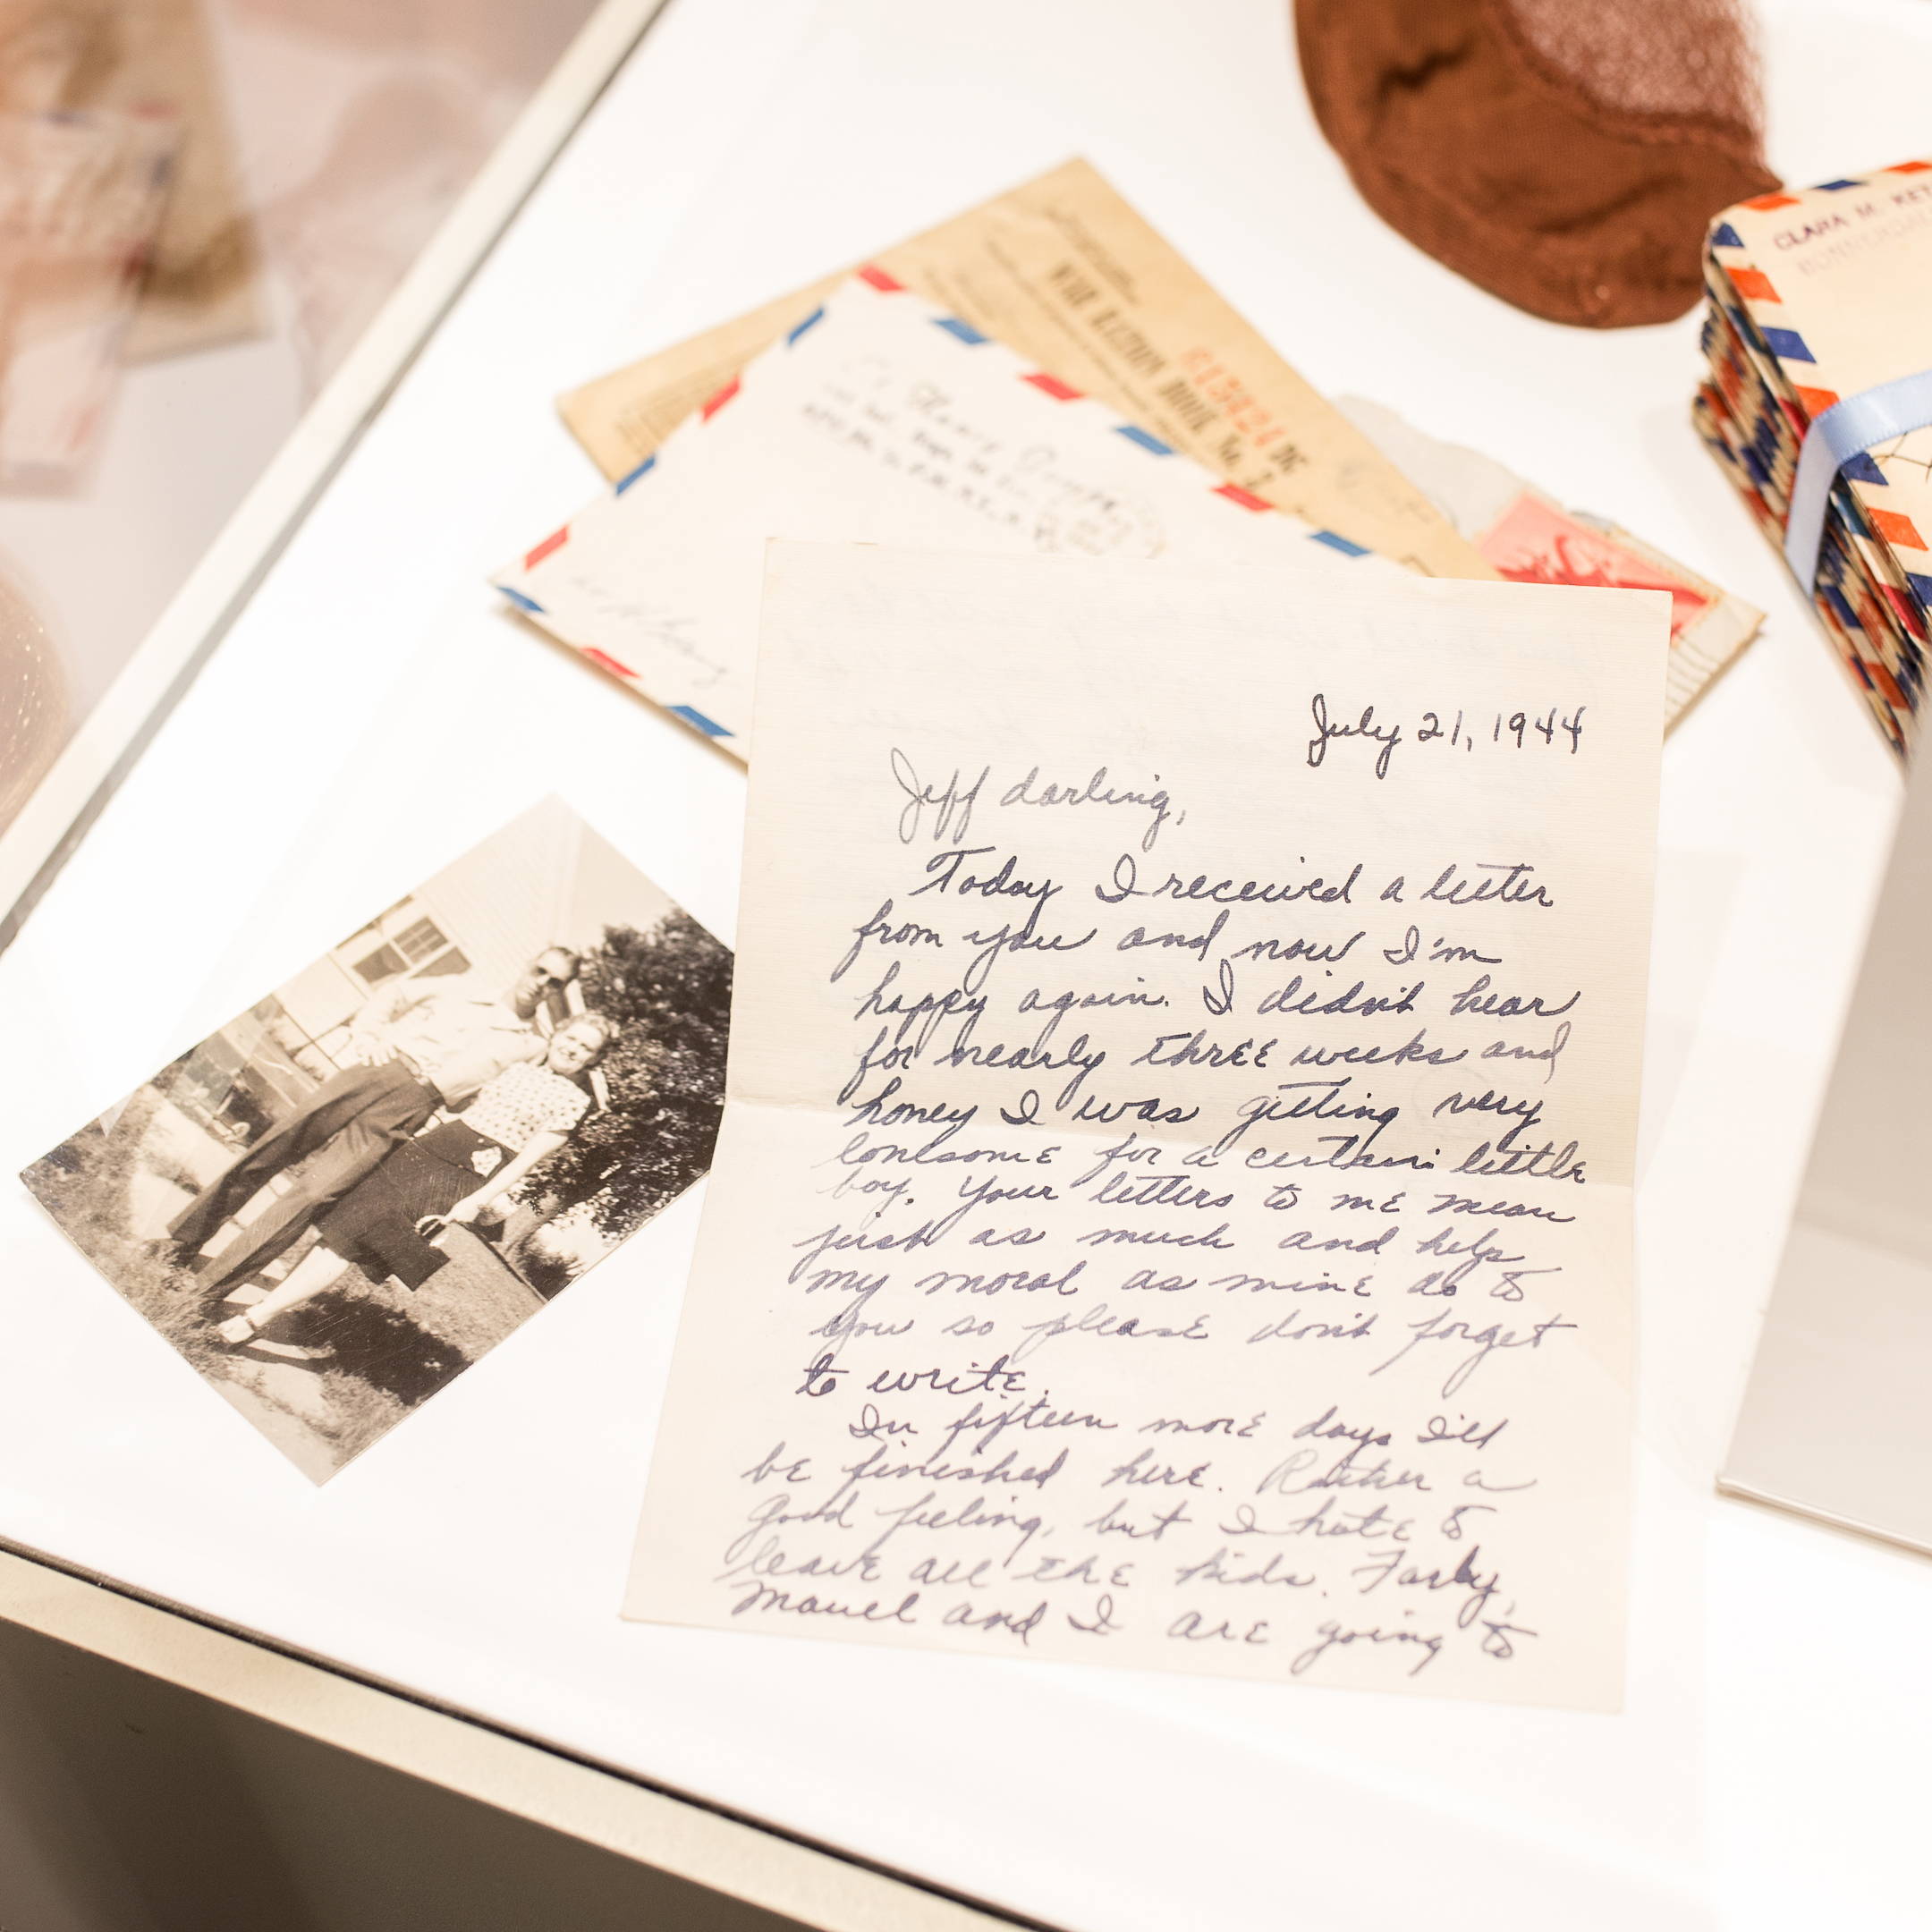 CLARA M.
WAR RATION BOOK No. 3
613424 DE
July 21, 1944
Jeff darling,
Today I received a letter
from you and now I'm
happy again. I didn't hear
for nearly three weeks and
honey I was getting very
lonesome for a certain little
boy. Your letters to me mean
just as much and help
my moral as mine do to
you so please don't forget
to write.
In fifteen more days I'll
be finished here. Rather a
good feeling, but I hate to
leave all the kids. Farby,
Mauel and I are going to